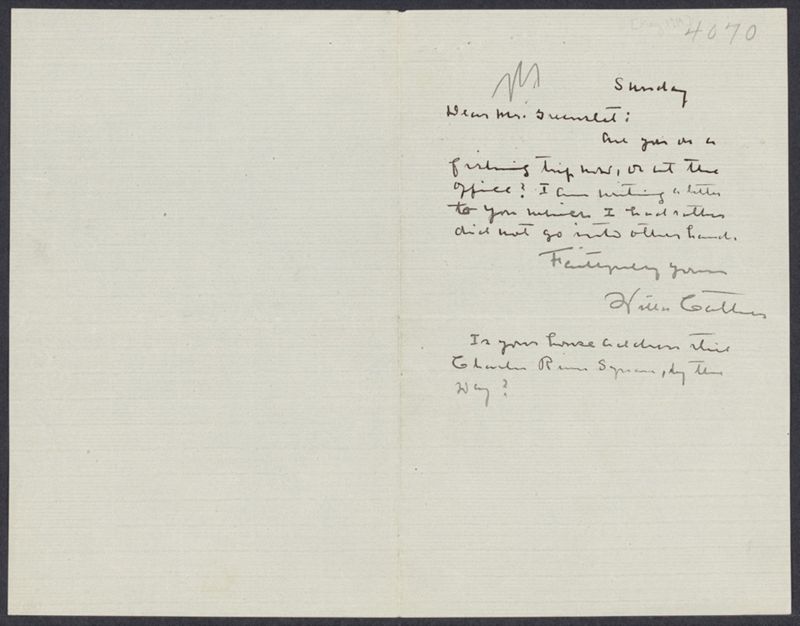 4070
Sunday
Dear Mr. Greenslet:
Are you on a
fishing trip now, or at the
office? I am writing a letter
to you which I had rather
did not go into other hands.
Faithfully yours
Willa Cather
Is your house address still
Charles River Square, by the
way?